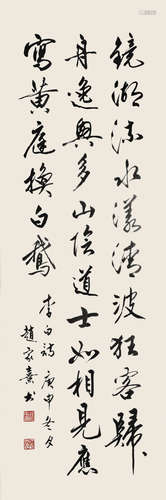 鏡湖流水漾清波狂客歸
舟逸興多山陰道士如相見應
寫黃庭換白鵝
李白詩庚申冬夕
趙家熹書